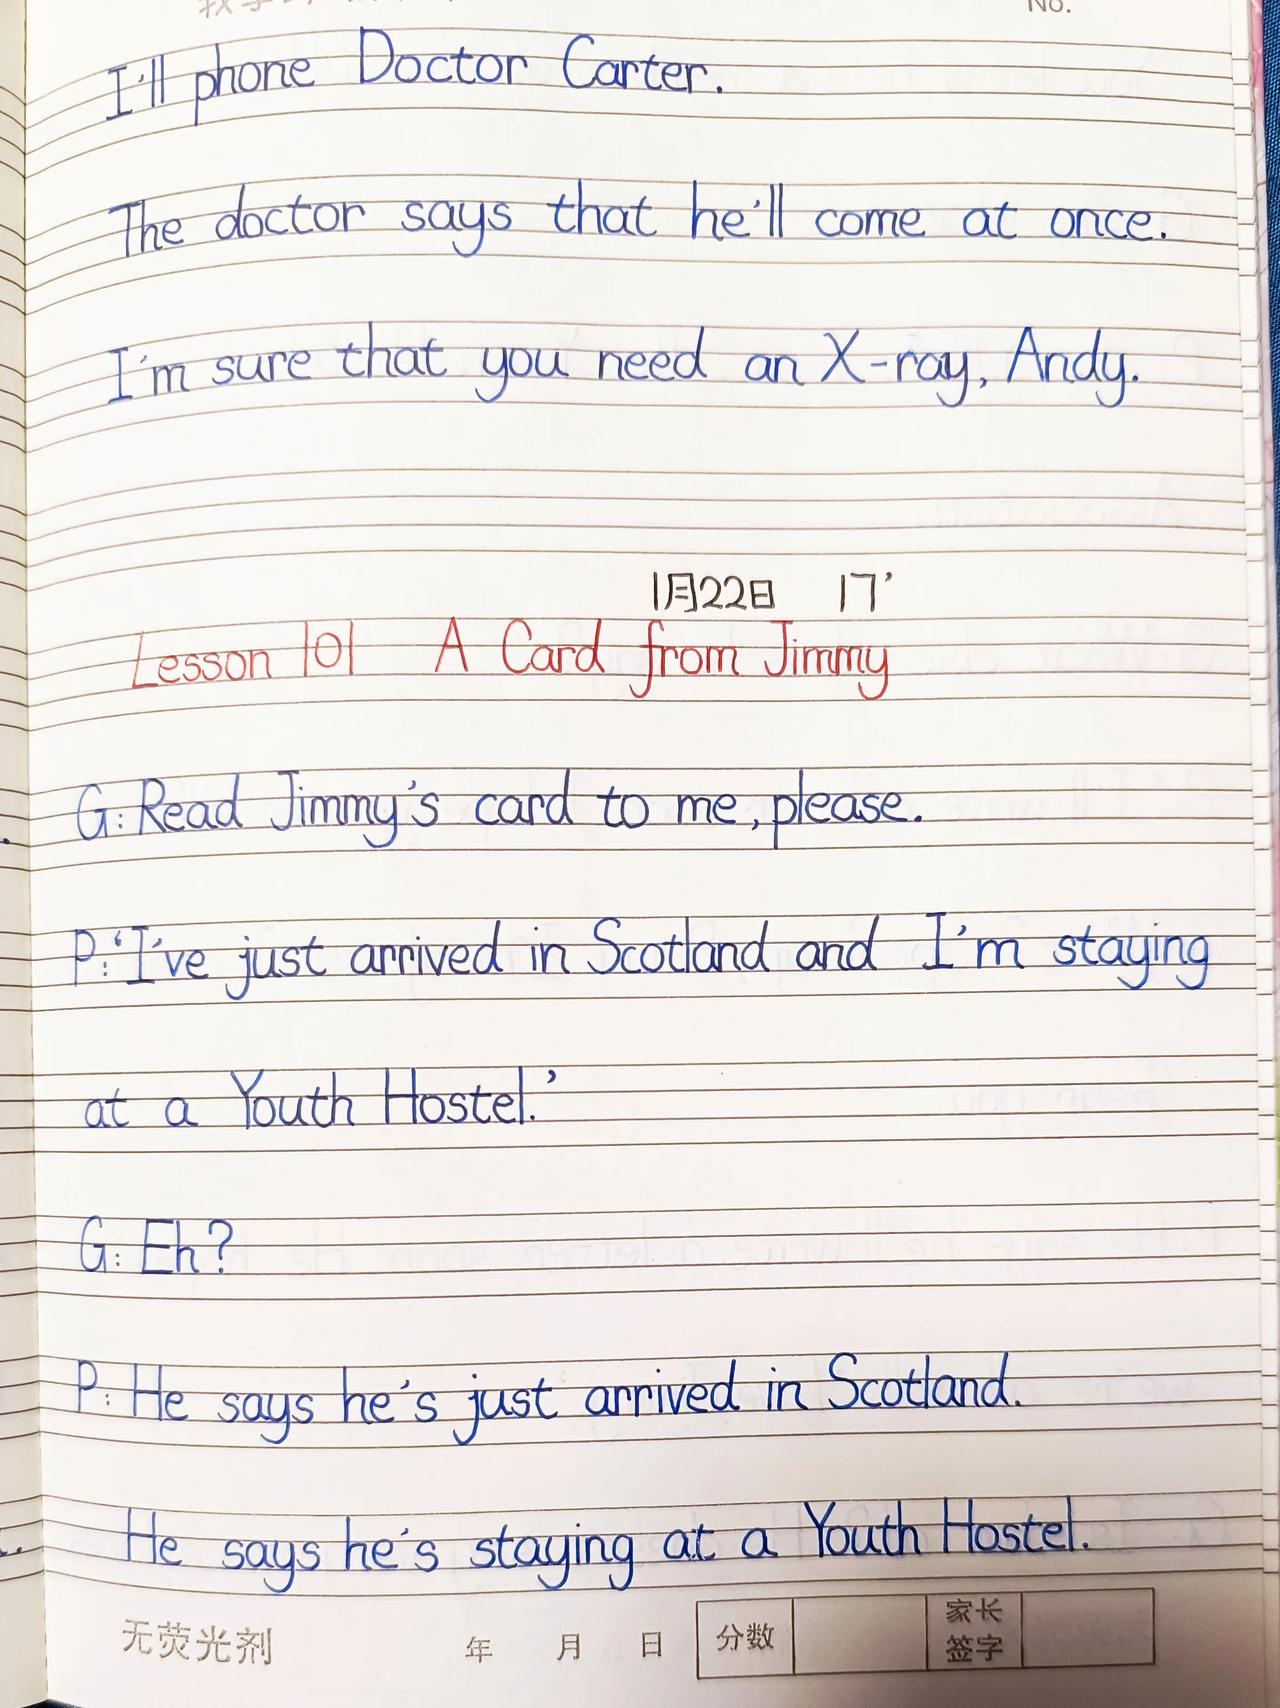 No.
I'll phone Doctor Carter.
The doctor says that he'll come at once.
I'm sure that you need an X-ray, Andy.
1月22日 17'
Lesson 101 A Card from Jimmy
G: Read Jimmy's card to me, please.
P: 'I've just arrived in Scotland and I'm staying
at a Youth Hostel.'
G: Eh?
P: He says he's just arrived in Scotland.
He says he's staying at a Youth Hostel.
无荧光剂 年 月 日 分数 家长
签字